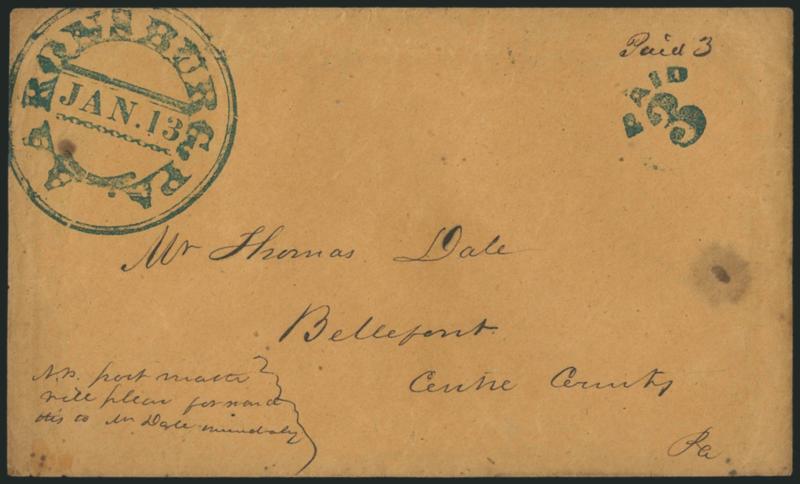 AARONSBURG PA
JAN. 13
Paid 3
PAID
3
Mr Thomas Dale
Bellefont
Centre County
Pa
N.B. post master
will please forward
this to Mr Dale